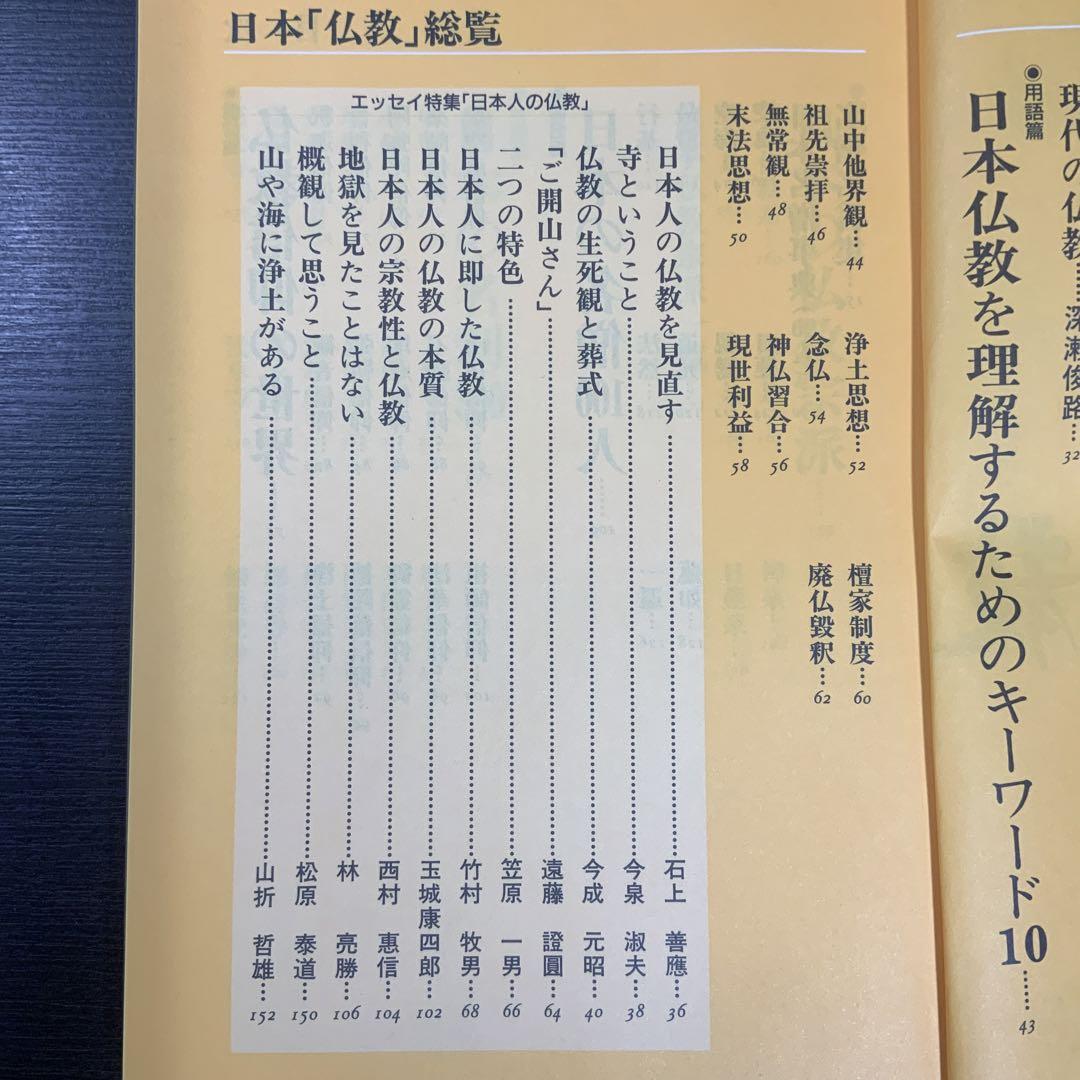 日本「仏教」総覧
現代の仏教……深瀬俊路…32
●用語篇
日本仏教を理解するためのキーワード10……43
山中他界観…44
浄土思想…52
檀家制度…60
祖先崇拝…46
念仏…54
廃仏毀釈…62
無常観…48
神仏習合…56
末法思想…50
現世利益…58
エッセイ特集「日本人の仏教」
日本人の仏教を見直す……石上 善應…36
寺ということ……今泉 淑夫…38
仏教の生死観と葬式……今成 元昭…40
「ご開山さん」……遠藤 證圓…64
二つの特色……笠原 一男…66
日本人に即した仏教……竹村 牧男…68
日本人の仏教の本質……玉城康四郎…102
日本人の宗教性と仏教……西村 惠信…104
地獄を見たことはない……林 亮勝…106
概観して思うこと……松原 泰道…150
山や海に浄土がある……山折 哲雄…152